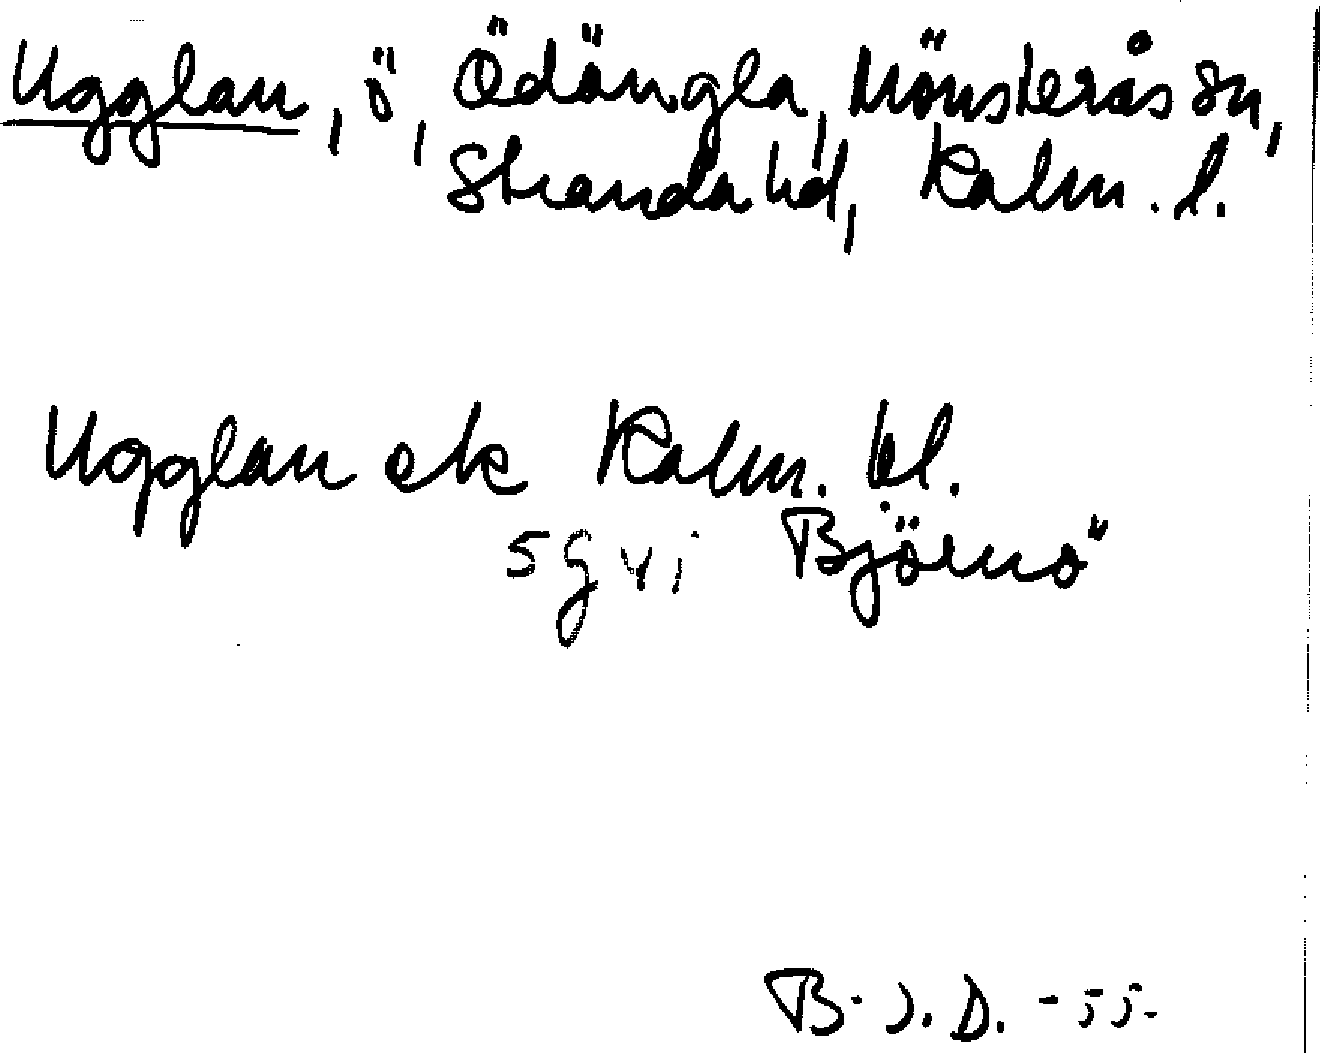 Ugglan, ö, Ödängla, Mönsterås sn,
Stranda hd, Kalm. l.
Ugglan ek Kalm. bl.
5 g vi Björnö
B. J. D. - 55.